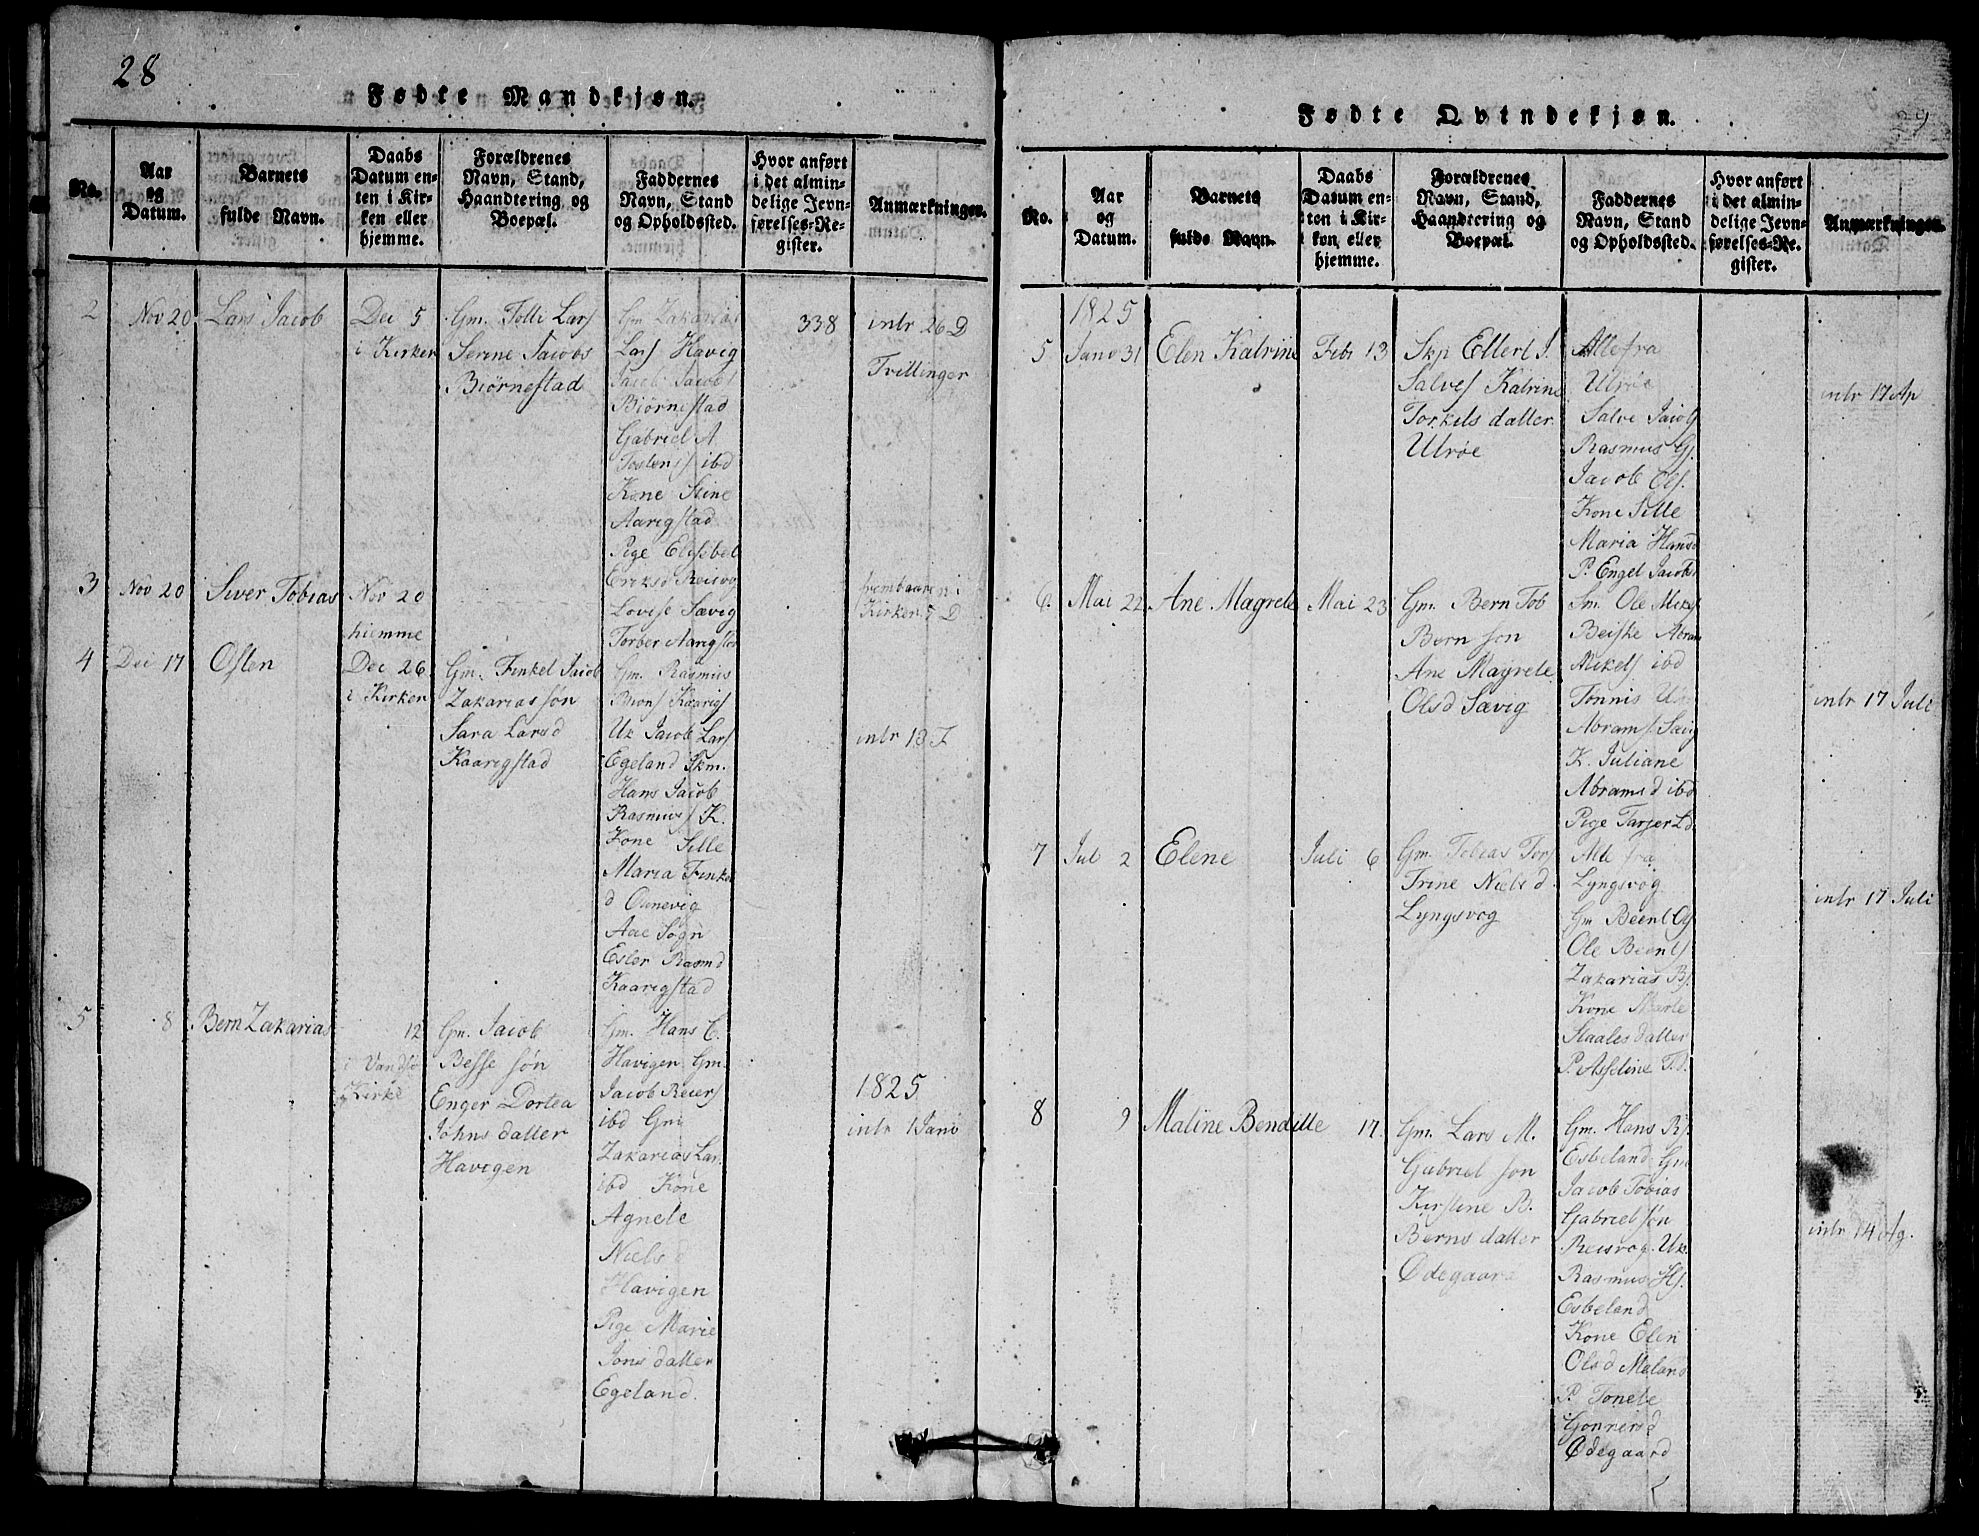 28
Fødte Mandkjøn.
No.
Aar og Datum.
Barnets fulde Navn.
Daabs Datum enten i Kirken eller hjemme.
Forældrenes Navn, Stand, Haandtering og Boepæl.
Faddernes Navn, Stand og Opholdssted.
Hvor anført i det almindelige Jevnførelses-Register.
Anmærkninger.
2
Nov 20
Lars Jacob
Dec 5
i Kirken
Gm. Lars
Serine Jacobs
Biørnestad
Gm Zakarias
Lars Havig
Jacob Jacobs
Biørnestad
Gabriel A
Tostens ibd
Kone Stine
Aarigstad
Pige Elisbet
Eriksd Reisvog
338
intr 26 D
Tvillinger
3
Nov 20
Siver Tobias
Nov 20
hiemme
Lovise Sævig
Torber Aarigstad
frembaaren i
Kirken 5 D
4
Dec 17
Osten
Dec 26
i Kirken
Gm. Finkel Jacob
Zakarias søn
Sara Larsd
Kaarigstad
Gm. Rasmus
Uk Jacob Lars
Egeland Skm.
Hans Jacob
Rasmus K.
Kone Sille
Maria Finkel
d Ounevig
Aae Sogn
Ester Rasmd
Kaarigstad
intr 13 F
5
8
Bern Zakarias
12
i Vandsø
Kirke
Gm. Jacob
Besse søn
Enger Dortea
Johns datter
Havigen
Gm. Hans C.
Havigen Gm.
Jacob Reiers
ibd Gm
Zakarias Lar.
ibd Kone
Agnete
Niels d
Havigen
Pige Marie
Jons datter
Egeland.
1825
intr 1 Jano
29
Fødte Qvindekjøn.
No.
Aar og Datum.
Barnets fulde Navn.
Daabs Datum enten i Kirken eller hjemme.
Forældrenes Navn, Stand, Haandtering og Boepæl.
Faddernes Navn, Stand og Opholdssted.
Hvor anført i det almindelige Jevnførelses-Register.
Anmærkninger.
1825
5
Jano 31
Elen Katrine
Febr 13
Skp Ellert J.
Salves Katrine
Torkils datter
Ulrøe
Alle fra
Ulrøe
Salve Jacobs
Rasmus G.
Jacob Ols.
Kone Sille
Maria Hansd
P. Engel Jacobs
intr 17 Ap
6.
Mai 22
Ane Magrete
Mai 23
Gm. Bern Tob
Bern søn
Ane Magrete
Olsd Sævig
Sm. Ole Mikels
Beiske Abram
Mikels ibd
Tønnis
Abrams Sævig
K. Juliane
Abramsd ibd
Pige Tarjer Ld.
intr 17 Juli
7
Jul 2
Elene
Juli 6
Gm. Tobias Tors
Trine Niels d
Lyngsvog
Alle fra
Lyngsvog
Gm Beent
Ole Beents
Zakarias B.
Kone Marte
Staales datter
P. Asseline T.d.
intr 17 Juli
8
9
Maline Benditte
17
Gm. Lars M.
Gabriel søn
Kirstine B.
Berns datter
Ødegaard
Gm. Hans R.
Esbeland Gm
Jacob Tobias
Gabriel søn
Reisvog. Uk.
Rasmus H.
Esbeland
Kone Elen
Olsd Meland
P. Tonete
Gonnersd
Ødegaard
intr 14 Ag.